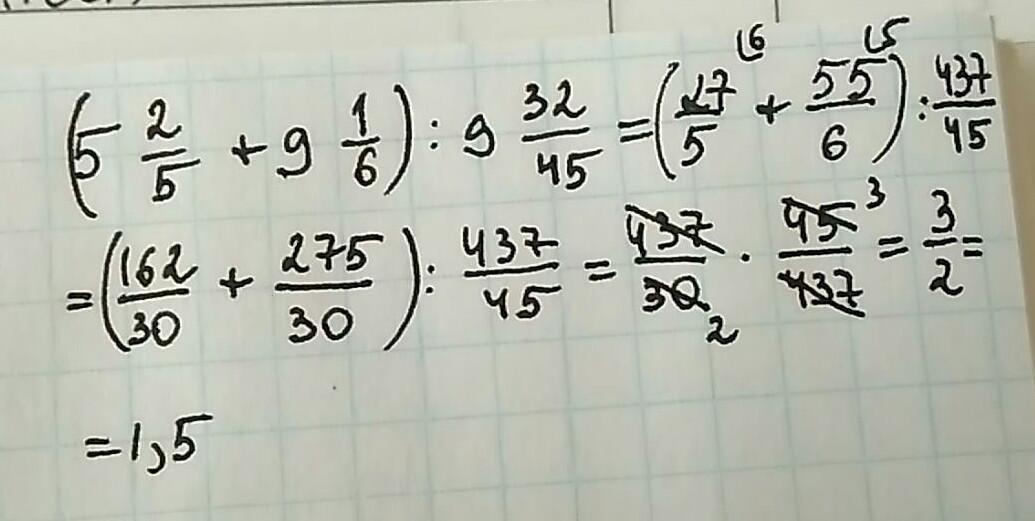 (5 2/5 + 9 1/6) : 9 32/45 = (27/5 ⌊6 + 55/6 ⌊5) : 437/45
= (162/30 + 275/30) : 437/45 = 437/30 2 · 45 3/437 = 3/2 =
= 1,5